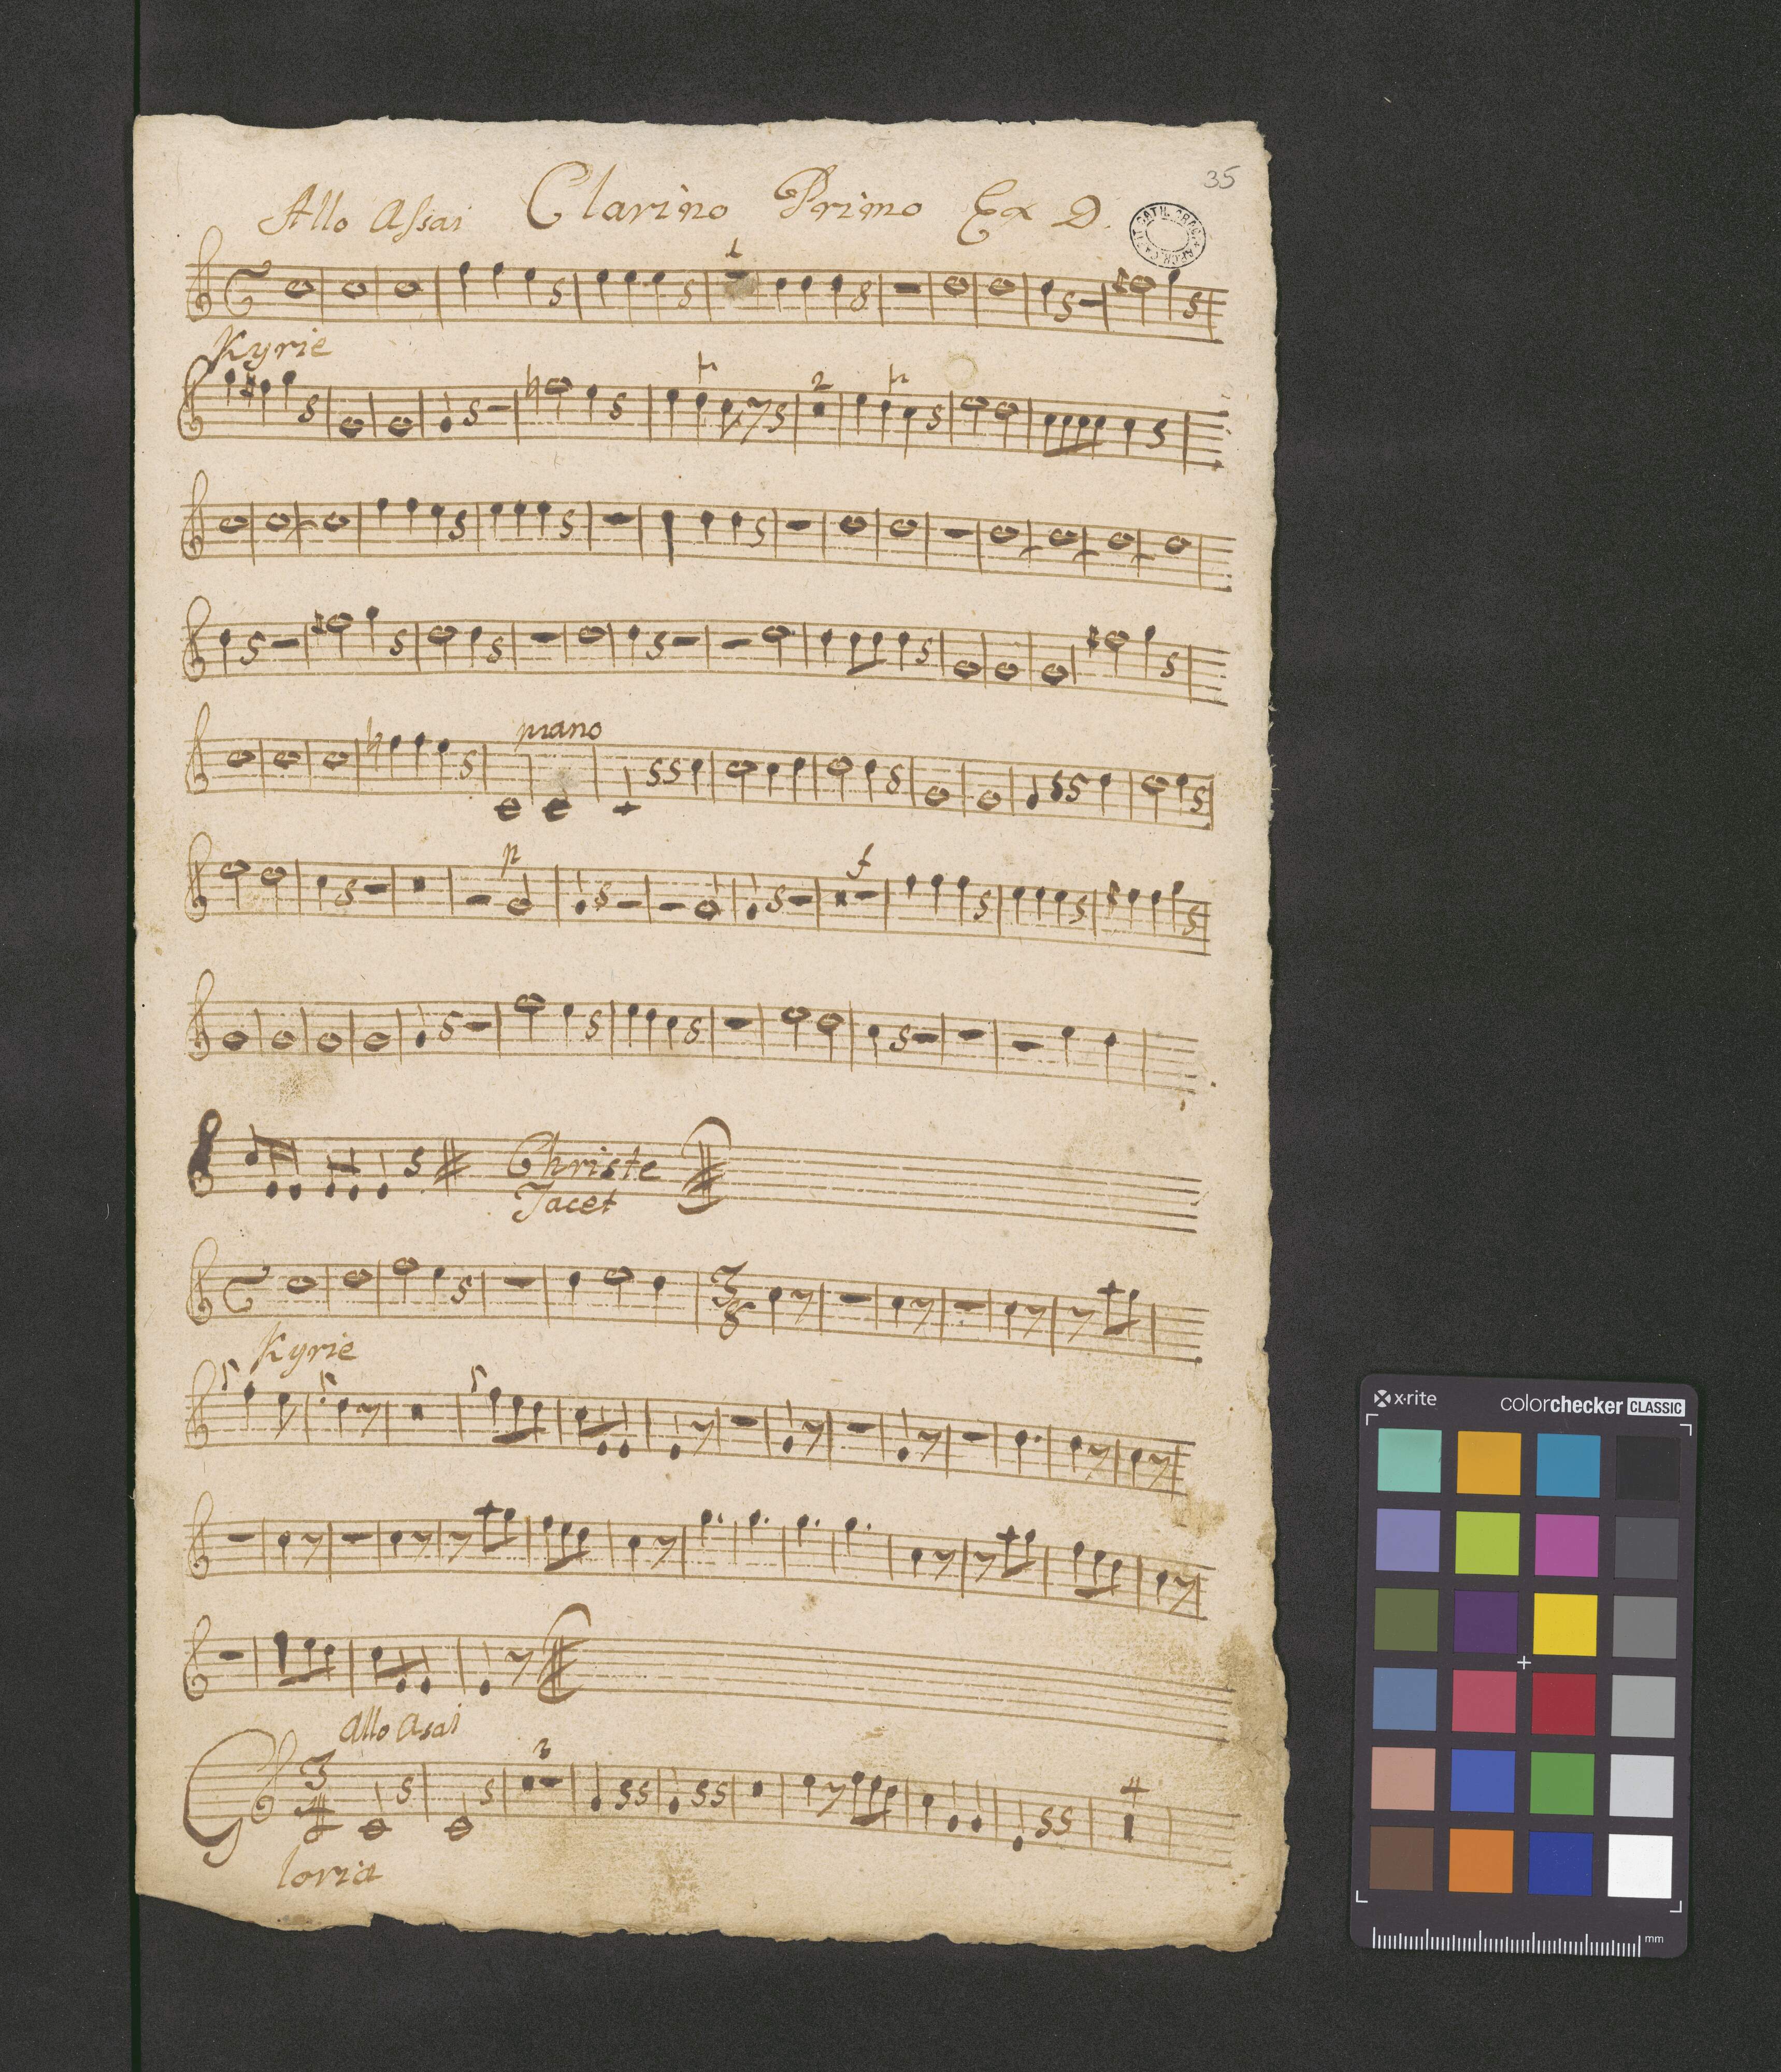 35
Allo Assai Clarino Primo Ex D.
1
Kyrie
2
piano
p
f
Christe
Tacet
3
8
Kyrie
Allo Asai
3
4
2
4
Gloria
x-rite colorchecker CLASSIC
mm